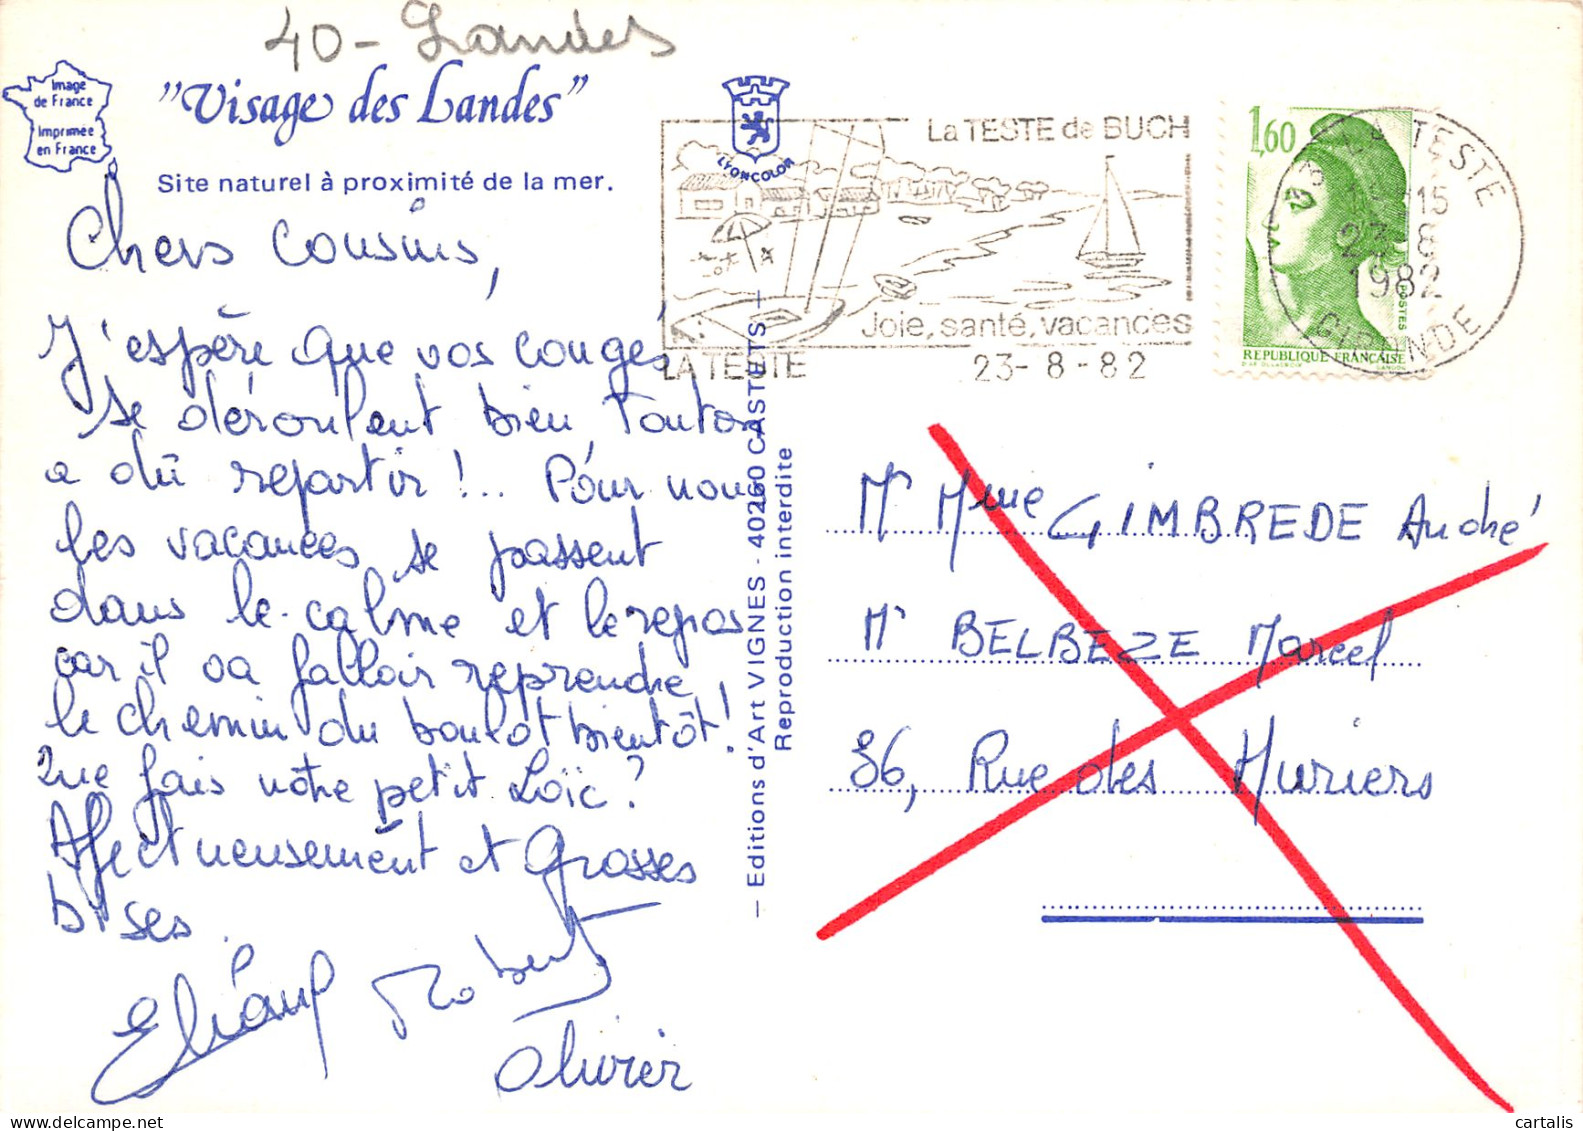 40 - Landes
Image
de France
Imprimée
en France
"Visage des Landes"
Site naturel à proximité de la mer.
Chers Cousins,
J'espère que vos congés
se déroulent bien, Tonton
a dû repartir !... Pour nous
les vacances se passent
dans le calme et le repos
car il va falloir reprendre
le chemin du boulot bientôt !
Que fais votre petit Loïc ?
Affectueusement et Grosses
bises.
Eliane Robert
Olivier
LYONCOLOR
— Editions d'Art VIGNES - 40260 CASTETS —
Reproduction interdite
La TESTE de BUCH
Joie, santé, vacances
LA TESTE 23-8-82
1,60
POSTES
REPUBLIQUE FRANCAISE
GANDON
LA TESTE
15
23 8
1982
GIRONDE
Mr Mme GIMBREDE André
Mr BELBEZE Marcel
36, Rue des Muriers
cartalis.com